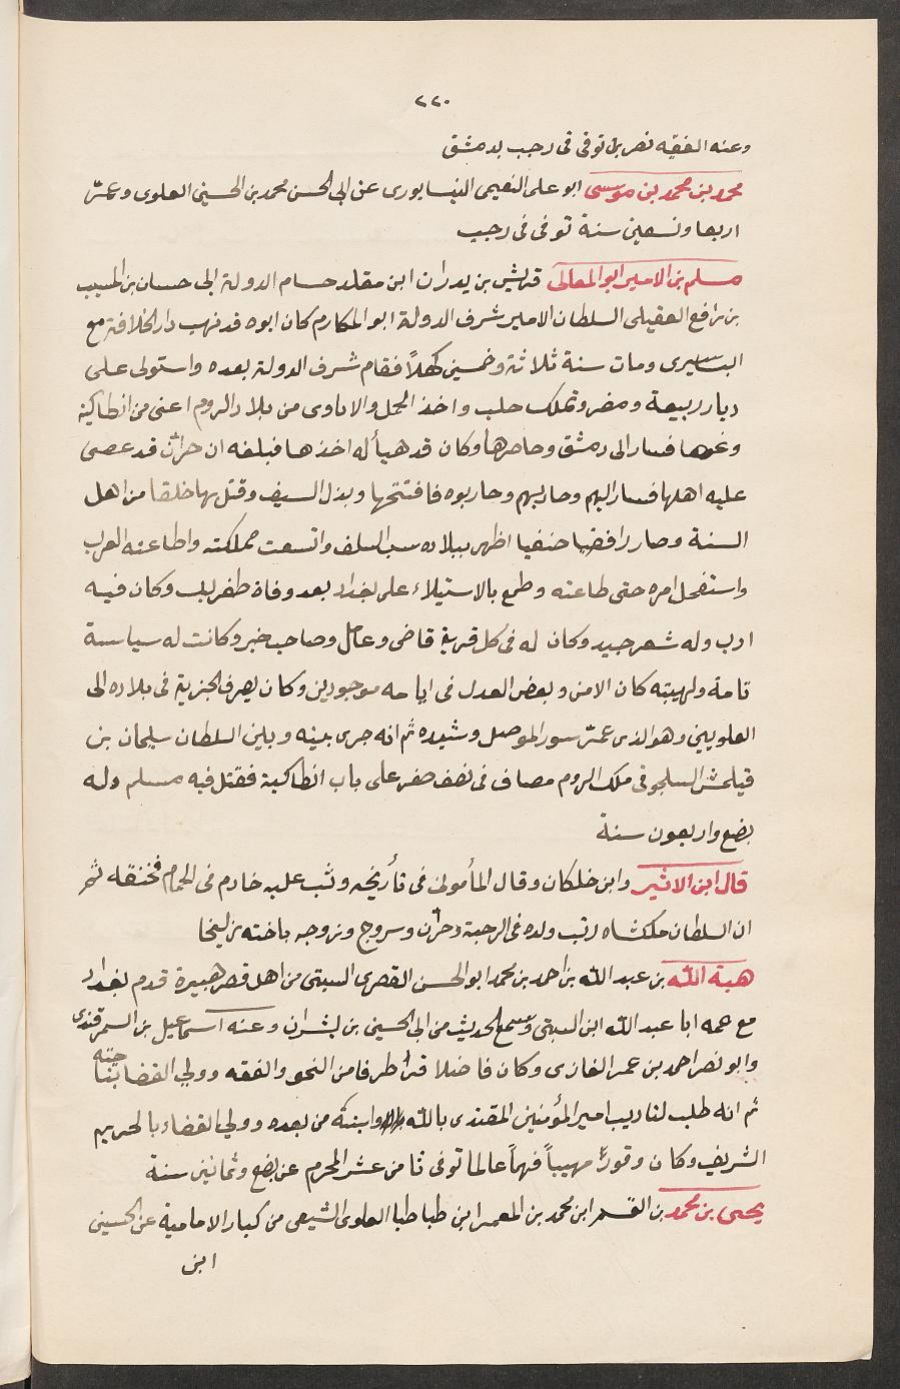 ٢٢٠
وعنه الفقيه نصر بن توفى فى رجب بدمشق
محمد بن محمد بن موسى ابو على النعيمى النيسابورى عن ابى الحسن محمد بن الحسينى العلوى وعمّر
اربعا وتسعين سنة توفى فى رجب
مسلم بن الامير ابو المعالى قريش بن بدران ابن مقلد حسام الدولة ابى حسان بن المسيب
بن رافع العقيلى السلطان الامير شرف الدولة ابو المكارم كان ابوه قد نهب دار الخلافة مع
البساسيرى ومات سنة ثلاثة وخمسين كهلاً فقام شرف الدولة بعده واستولى على
ديار ربيعة ومضر وتملك حلب واخذ الحمل والاتاوى من بلاد الروم اعنى من انطاكية
ونحوها فسار الى دمشق وحاصرها وكان قد هيأ له اخذها فبلغه ان حران قد عصى
عليه اهلها فسار اليهم وحاربهم وحاربوه فافتتحها وبذل السيف وقتل بها خلقا من اهل
السنة وصار رافضيا خنفيا اظهر ببلاده سب السلف واتسعت مملكته واطاعته العرب
واستفحل امره حتى طاعته وطمع بالاستيلاء على بغداد بعد وفاة طغرلبك وكان فيه
ادب وله شعر جيد وكان له فى كل قرية قاضى وعامل وصاحب خبر وكانت له سياسة
تامة ولهيبته كان الامن وبعض العدل فى ايامه موجودين وكان يصرف الجزية فى بلاده الى
العلويين وهو الذى عمّر سور الموصل وشيده ثم انه جرى بينه وبين السلطان سليمان بن
قتلمش السلجوقى ملك الروم مصاف فى نصف صفر على باب انطاكية فقتل فيه مسلم وله
بضع واربعون سنة
قال ابن الاثير وابن خلكان وقال المأمونى فى تأريخه وثب عليه خادم فى الحمام فخنقه ثم
ان السلطان ملكشاه رتب ولده فى الرحبة وحران وسروج وزوجه باخته زليخا
هبة الله بن عبد الله بن احمد بن محمد ابو الحسن القصرى السيبى من اهل قصر هبيرة قدم بغداد
مع عمه ابا عبد الله ابن السيبى وسمع الحديث من ابى الحسين بن بشران وعنه اسماعيل بن السمرقندى
وابو نصر احمد بن عمر الغازى وكان فاضلا قرأ طرفا من النحو والفقه وولي القضا بناحيته
ثم انه طلب لتاديب امير المؤمنين المقتدى بالله وابنته من بعده وولي القضاء بالحريم
الشريف وكان وقوراً مهيباً فهماً عالما توفى ثامن عشر المحرم عن بضع وثمانين سنة
يحيى بن محمد بن القسم ابن محمد بن المعمر ابن طباطبا العلوى الشيعى من كبار الامامية عن الحسينى
ابن